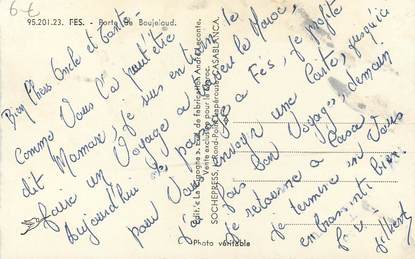 6€
95.201.23. FES. - Porte de Boujeloud.
Bien Chers Oncle et tante
Comme Vous l'a peut-être
dit Maman, Je suis en train de
faire un Voyage à travers le Maroc,
Aujourd'hui à Fès, Je profite
pour Vous envoyer une Carte, jusqu'ici
J'ai fais bon Voyage, demain
Je retourne à Casa.
Je termine en Vous
embrassant bien
Gilbert
Édit. « La Cigogne », de fabrication André Leconte,
Vente exclusive pour le Maroc,
SOCHEPRESS, Rond-Point Lapérouse, CASABLANCA.
Photo véritable